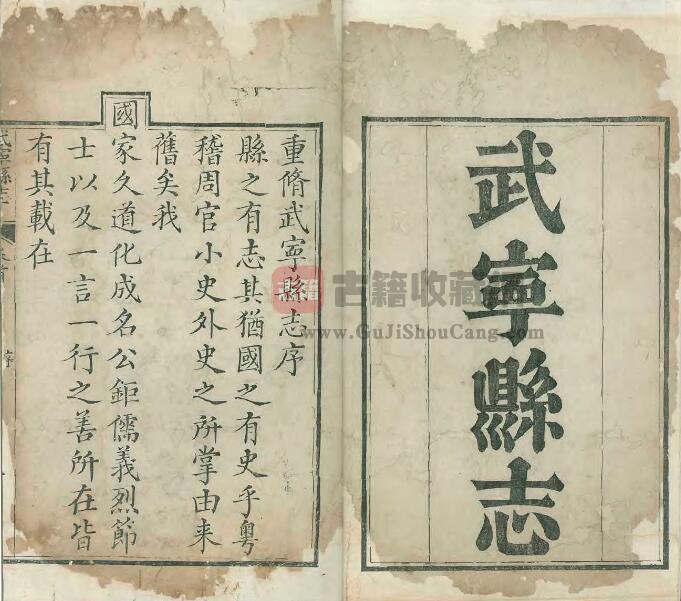 武寧縣志
重脩武寧縣志序
縣之有志其猶國之有史乎粤
稽周官小史外史之所掌由来
舊矣我
國家久道化成名公鉅儒義烈節
士以及一言一行之善所在皆
有其載在
武寧縣志
序
古籍
古籍收藏
www.GuJiShouCang.com